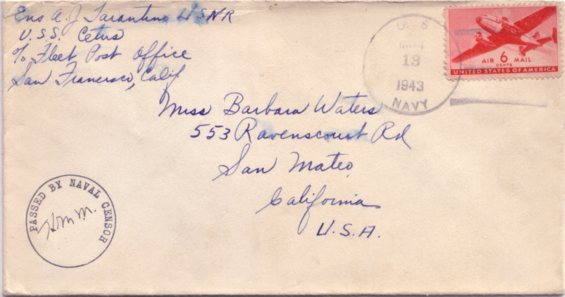 Ens A. J Tarantino USNR
U.S.S. Cetus
℅ Fleet Post Office
San Francisco, Calif
U.S.
13
1943
NAVY
6
CENTS
AIR MAIL
UNITED STATES OF AMERICA
Miss Barbara Waters
553 Ravenscourt Rd
San Mateo,
California
U.S.A.
PASSED BY NAVAL CENSOR